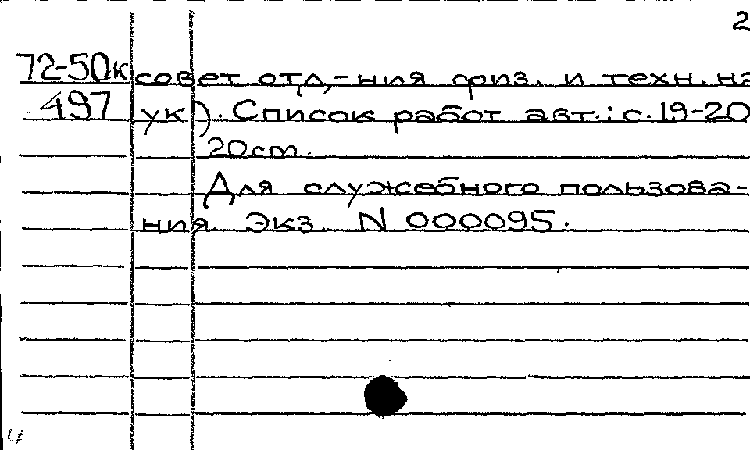 2
72-50к совет отд,-ния физ. и техн. на
497 ук). Список работ авт.: с.19-20
20cm.
Для служебного пользова-
ния. Экз. N 000095.